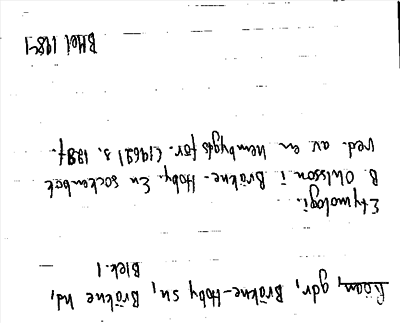 gdr, Bräkne-Hoby sn, Bräkne hd,
Blek. l
Etymologi.
B. Ohlsson i Bräkne-Hoby. En sockenbok
red. av en hembygds för. (1962) s.
BHel 1984